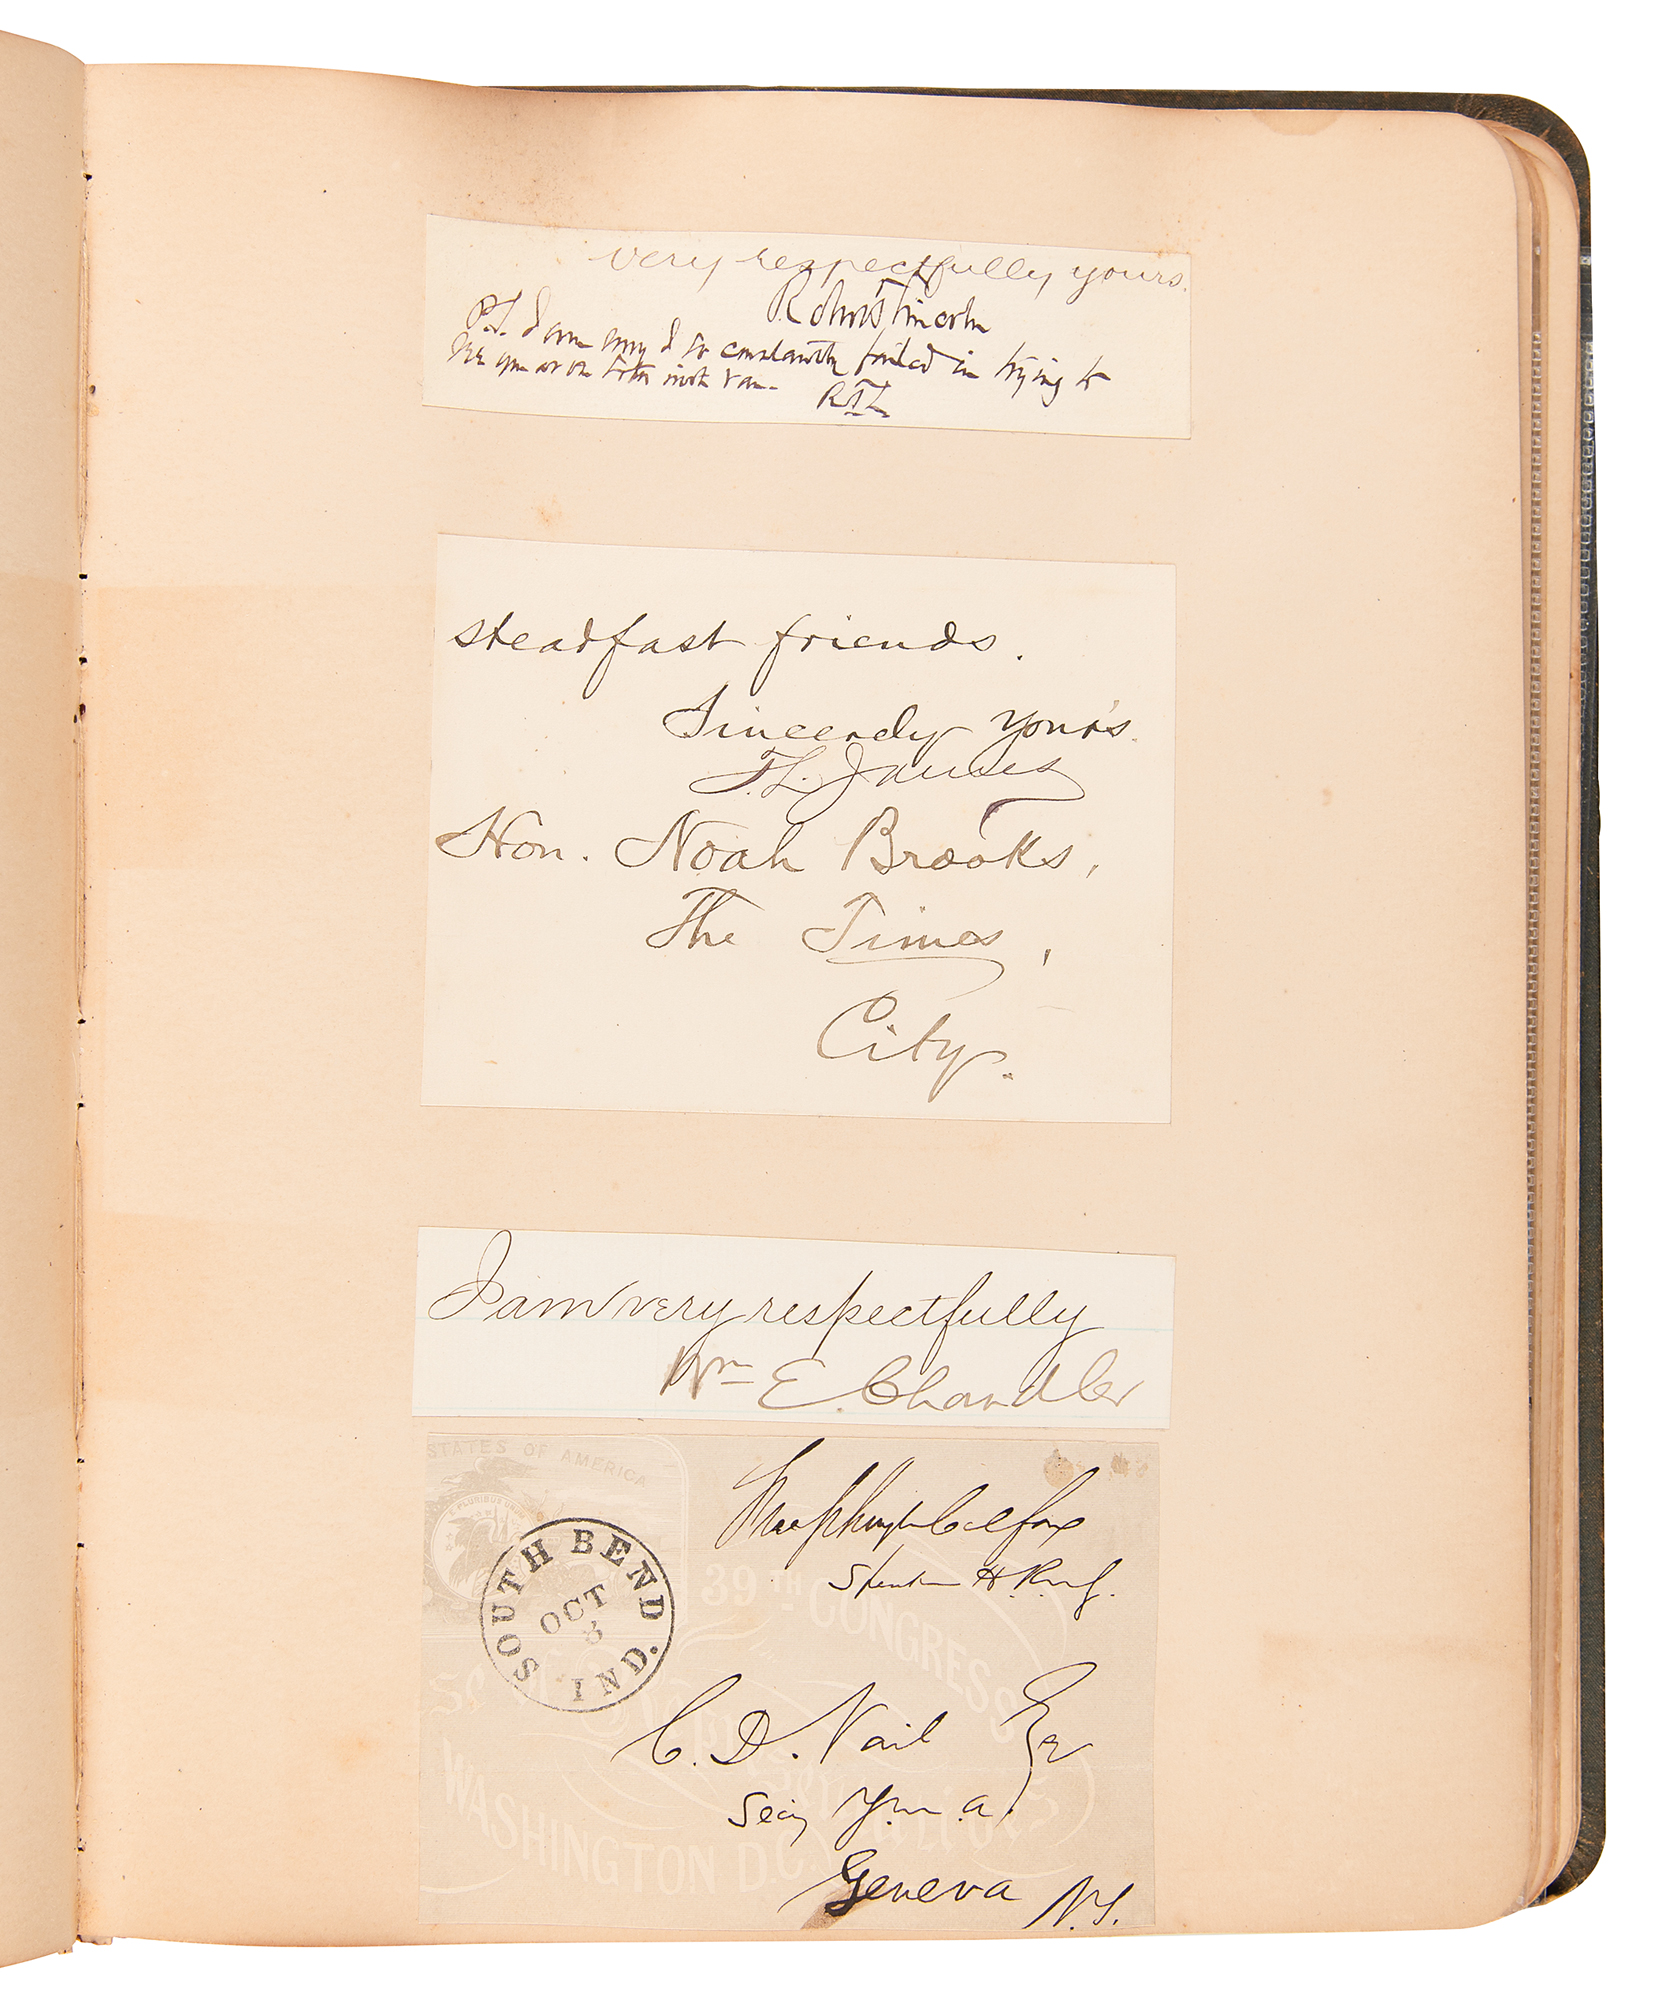 very respectfully yours.
Robert T Lincoln
P.S. I am sorry I so constantly failed in trying to
see you at the
RTL
steadfast friends.
Sincerely yours.
T.L. James
Hon. Noah Brooks,
The Times,
City.
I am very respectfully
Wm E. Chandler
STATES OF AMERICA
E PLURIBUS UNUM
SOUTH BEND
OCT
8
IND.
Schuyler Colfax
Speaker H. Reps.
39TH CONGRESS
House of Representatives
WASHINGTON D.C.
C. D. Vail Esq
Secy Y.m.a.
Geneva N.Y.